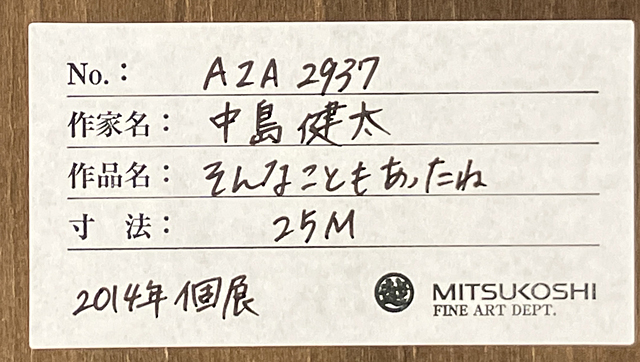 No.： A2A 2937
作家名： 中島健太
作品名： そんなこともあったね
寸　法： 25M
2014年 個展
越 MITSUKOSHI
FINE ART DEPT.